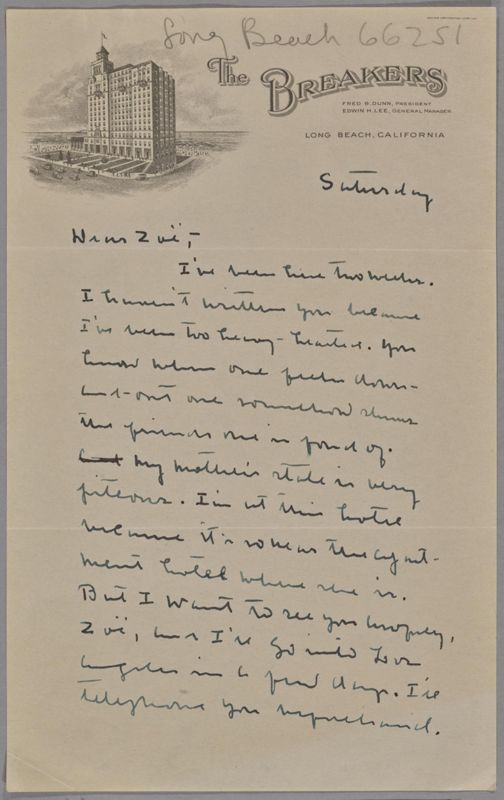 Long Beach 66251
The BREAKERS
FRED B. DUNN, PRESIDENT
EDWIN H. LEE, GENERAL MANAGER
LONG BEACH, CALIFORNIA
Saturday
Dear Zoë,-
I've been here two weeks.
I haven't written you because
I've been too heavy-hearted. You
know when one feels down-
and-out one somehow shuns
the friends one is fond of.
My mother's state is very
piteous. I'm at this hotel
because it's so near the apart-
ment hotel where she is.
But I want to see you
Zoë, and I'll go into Los
Angeles in a few days. I'll
telephone you beforehand.